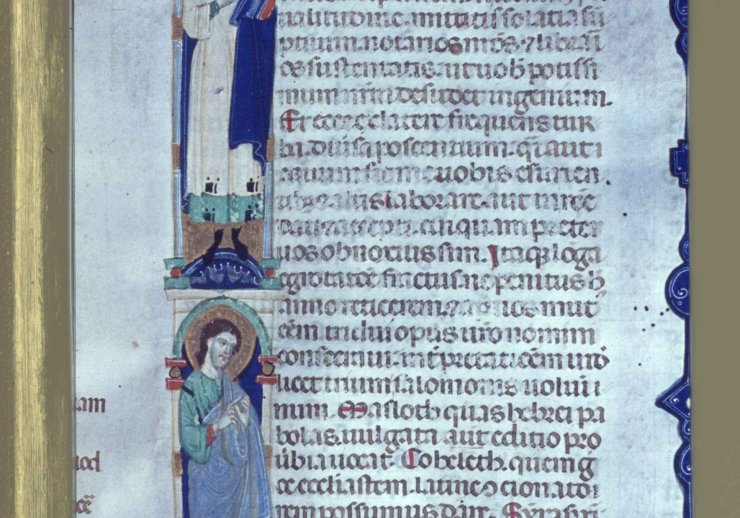 nalitudine. mittitis solatia sũ
ptuum. notarios nr̃os ⁊ librari
os sustentatis. ut uob̃ potissi
mum nr̃m desudet ingenium.
Et ecce ex latere frequens tur
ba diuersa poscentium. qͥ aut e
quum sit me uobis esurien
tib; aliis laborare. aut in r̃oe
dati ⁊ accepti. cuiquam preter
uos obnoxius sim. Itaqꝫ lõga
egrotatõe fractus. ne penitus h̃
anno reticerem. ⁊ apud uos mut̾
eẽm. tridui opus nr̃o nomini
consecraui. int̾pretatiõem uidel̃
licet trium salomonis uolumi
num. Masloth quas hebrei pa
bolas. uulgata aut̃ editio pro
ũbia uocat. Coheleth. quem g̾
ce ecclesiasten. latine ↄcionatori
em possumus dic̾e. Syrasiri
lam
uod
cẽ